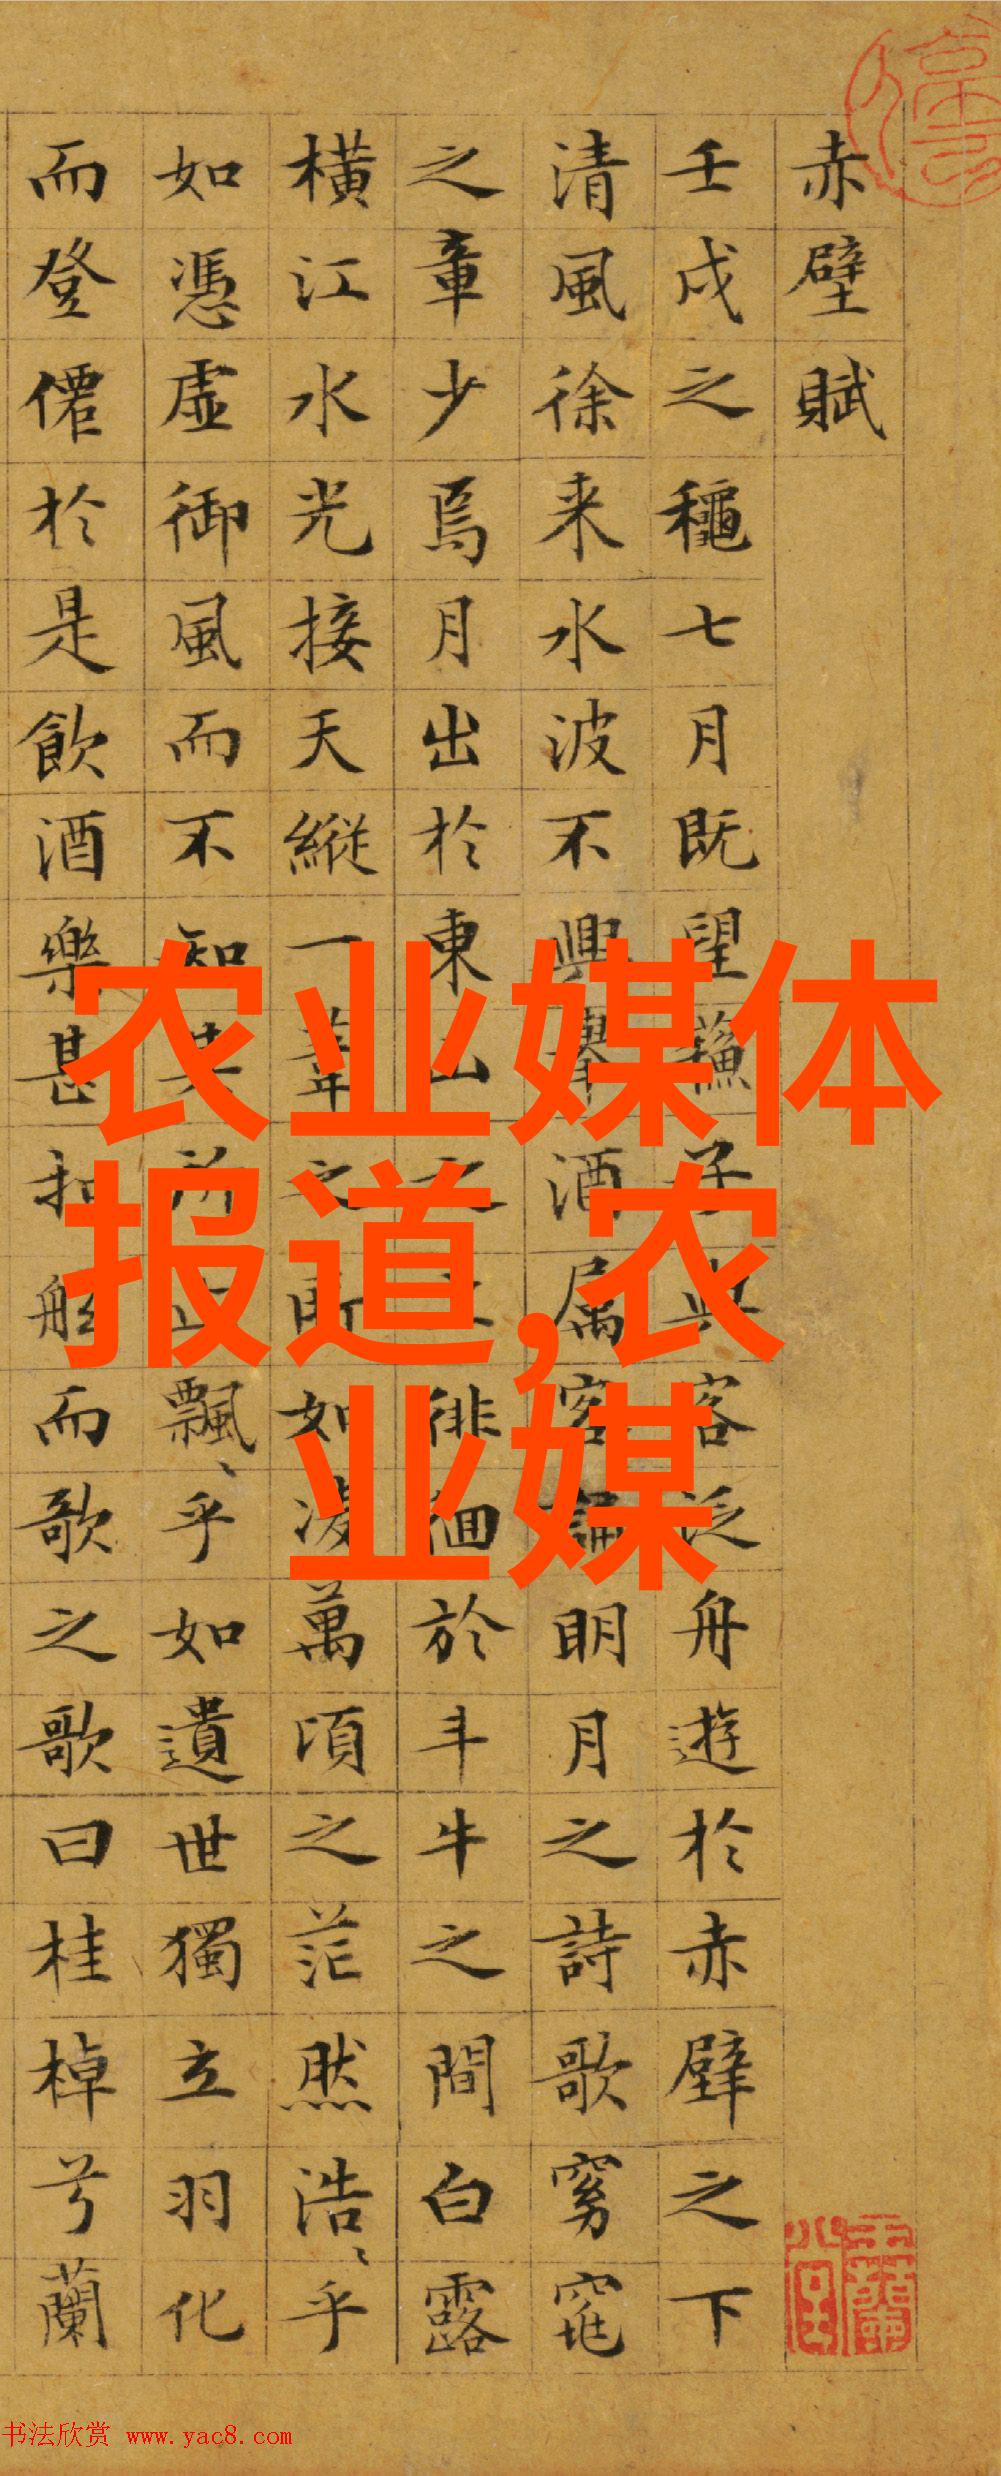 赤壁賦
壬戌之穐七月既望蘓子與客泛舟遊於赤壁之下
清風徐来水波不興舉酒属客誦明月之詩歌窈窕
之章少焉月出於東山之上徘徊於斗牛之間白露
橫江水光接天縱一葦之所如凌萬頃之茫然浩、乎
如憑虛御風而不知其所止飄、乎如遺世獨立羽化
而登僊於是飲酒樂甚扣舷而歌之歌曰桂棹兮蘭
农业媒体
报道,农
业媒
书法欣赏 www.yac8.com